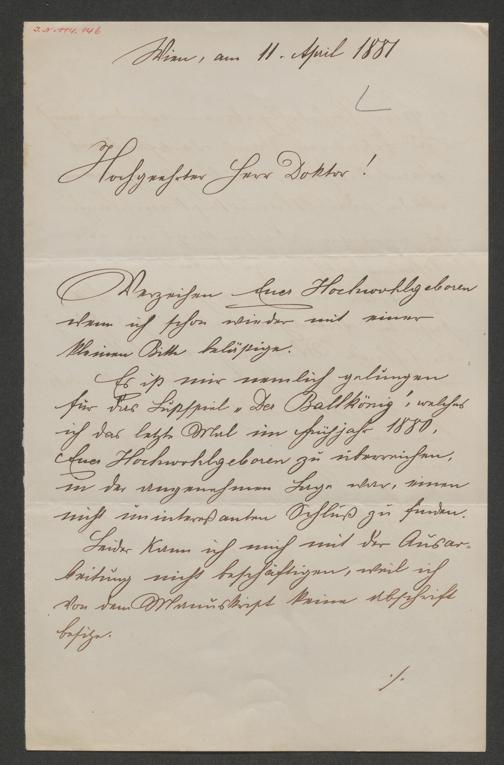 I.N. 114.146
Wien, am 11. April 1881
Hochgeehrter Herr Doktor!
Verzeihen Euer Hochwohlgeboren
wenn ich schon wieder mit einer
kleinen Bitte belästige.
Es ist mir nemlich gelungen
für das Lustspiel „Der Ballkönig", welches
ich das letzte Mal im Frühjahr 1880,
Euer Hochwohlgeboren zu überreichen,
in der angenehmen Lage war, einen
nicht uninteressanten Schluß zu finden.
Leider kann ich mich mit der Ausar-
beitung nicht beschäftigen, weil ich
von dem Manuskript keine Abschrift
besitze.
./.